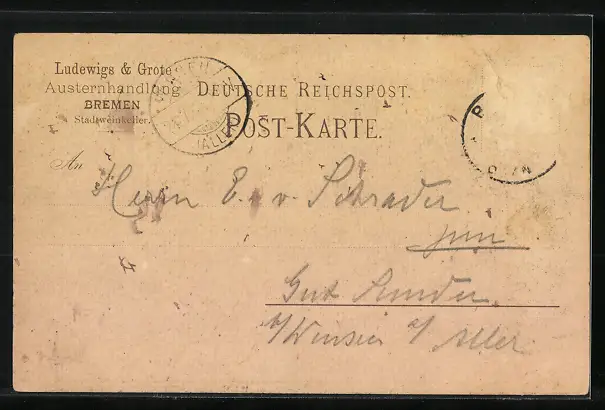 Ludewigs & Grote
Austernhandlung
BREMEN
Stadtweinkeller.
DEUTSCHE REICHSPOST.
POST-KARTE.
(ALLER)
An Herrn E. v. Schrader
jun
Gut Sunder
b/Winsen a/ Aller.